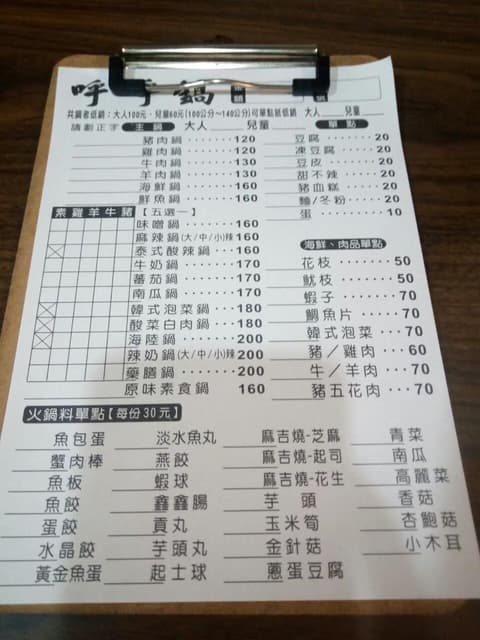 呼 鍋
共鍋者低銷：大人100元、兒童60元(100公分～140公分)可單點抵低銷 大人 兒童
請劃正字 主鍋 大人 兒童 單點
豬肉鍋 ······· 120
雞肉鍋 ······· 120
牛肉鍋 ······· 130
羊肉鍋 ······· 130
海鮮鍋 ······· 160
鮮魚鍋 ······· 160
豆腐 ······ 20
凍豆腐 ····· 20
豆皮 ······ 20
甜不辣 ····· 20
豬血糕 ····· 20
麵/冬粉 ····· 20
蛋 ········ 10
素 雞 羊 牛 豬 【五選一】
味噌鍋 ······ 160
麻辣鍋(大/中/小辣) 160
泰式酸辣鍋 ··· 160
牛奶鍋 ······ 170
蕃茄鍋 ······ 170
南瓜鍋 ······ 170
韓式泡菜鍋 ··· 180
酸菜白肉鍋 ··· 180
海陸鍋 ······ 200
辣奶鍋(大/中/小辣) 200
藥膳鍋 ······ 200
原味素食鍋 160
海鮮、肉品單點
花枝 ······ 50
魷魚 ······ 50
蝦子 ······ 70
鯛魚片 ····· 70
韓式泡菜 ··· 70
豬／雞肉 ··· 60
牛／羊肉 ··· 70
豬五花肉 ··· 70
火鍋料單點【每份30元】
魚包蛋 淡水魚丸 麻吉燒-芝麻 青菜
蟹肉棒 燕餃 麻吉燒-起司 南瓜
魚板 蝦球 麻吉燒-花生 高麗菜
魚餃 鑫鑫腸 芋頭 香菇
蛋餃 貢丸 玉米筍 杏鮑菇
水晶餃 芋頭丸 金針菇 小木耳
黃金魚蛋 起士球 蔥蛋豆腐